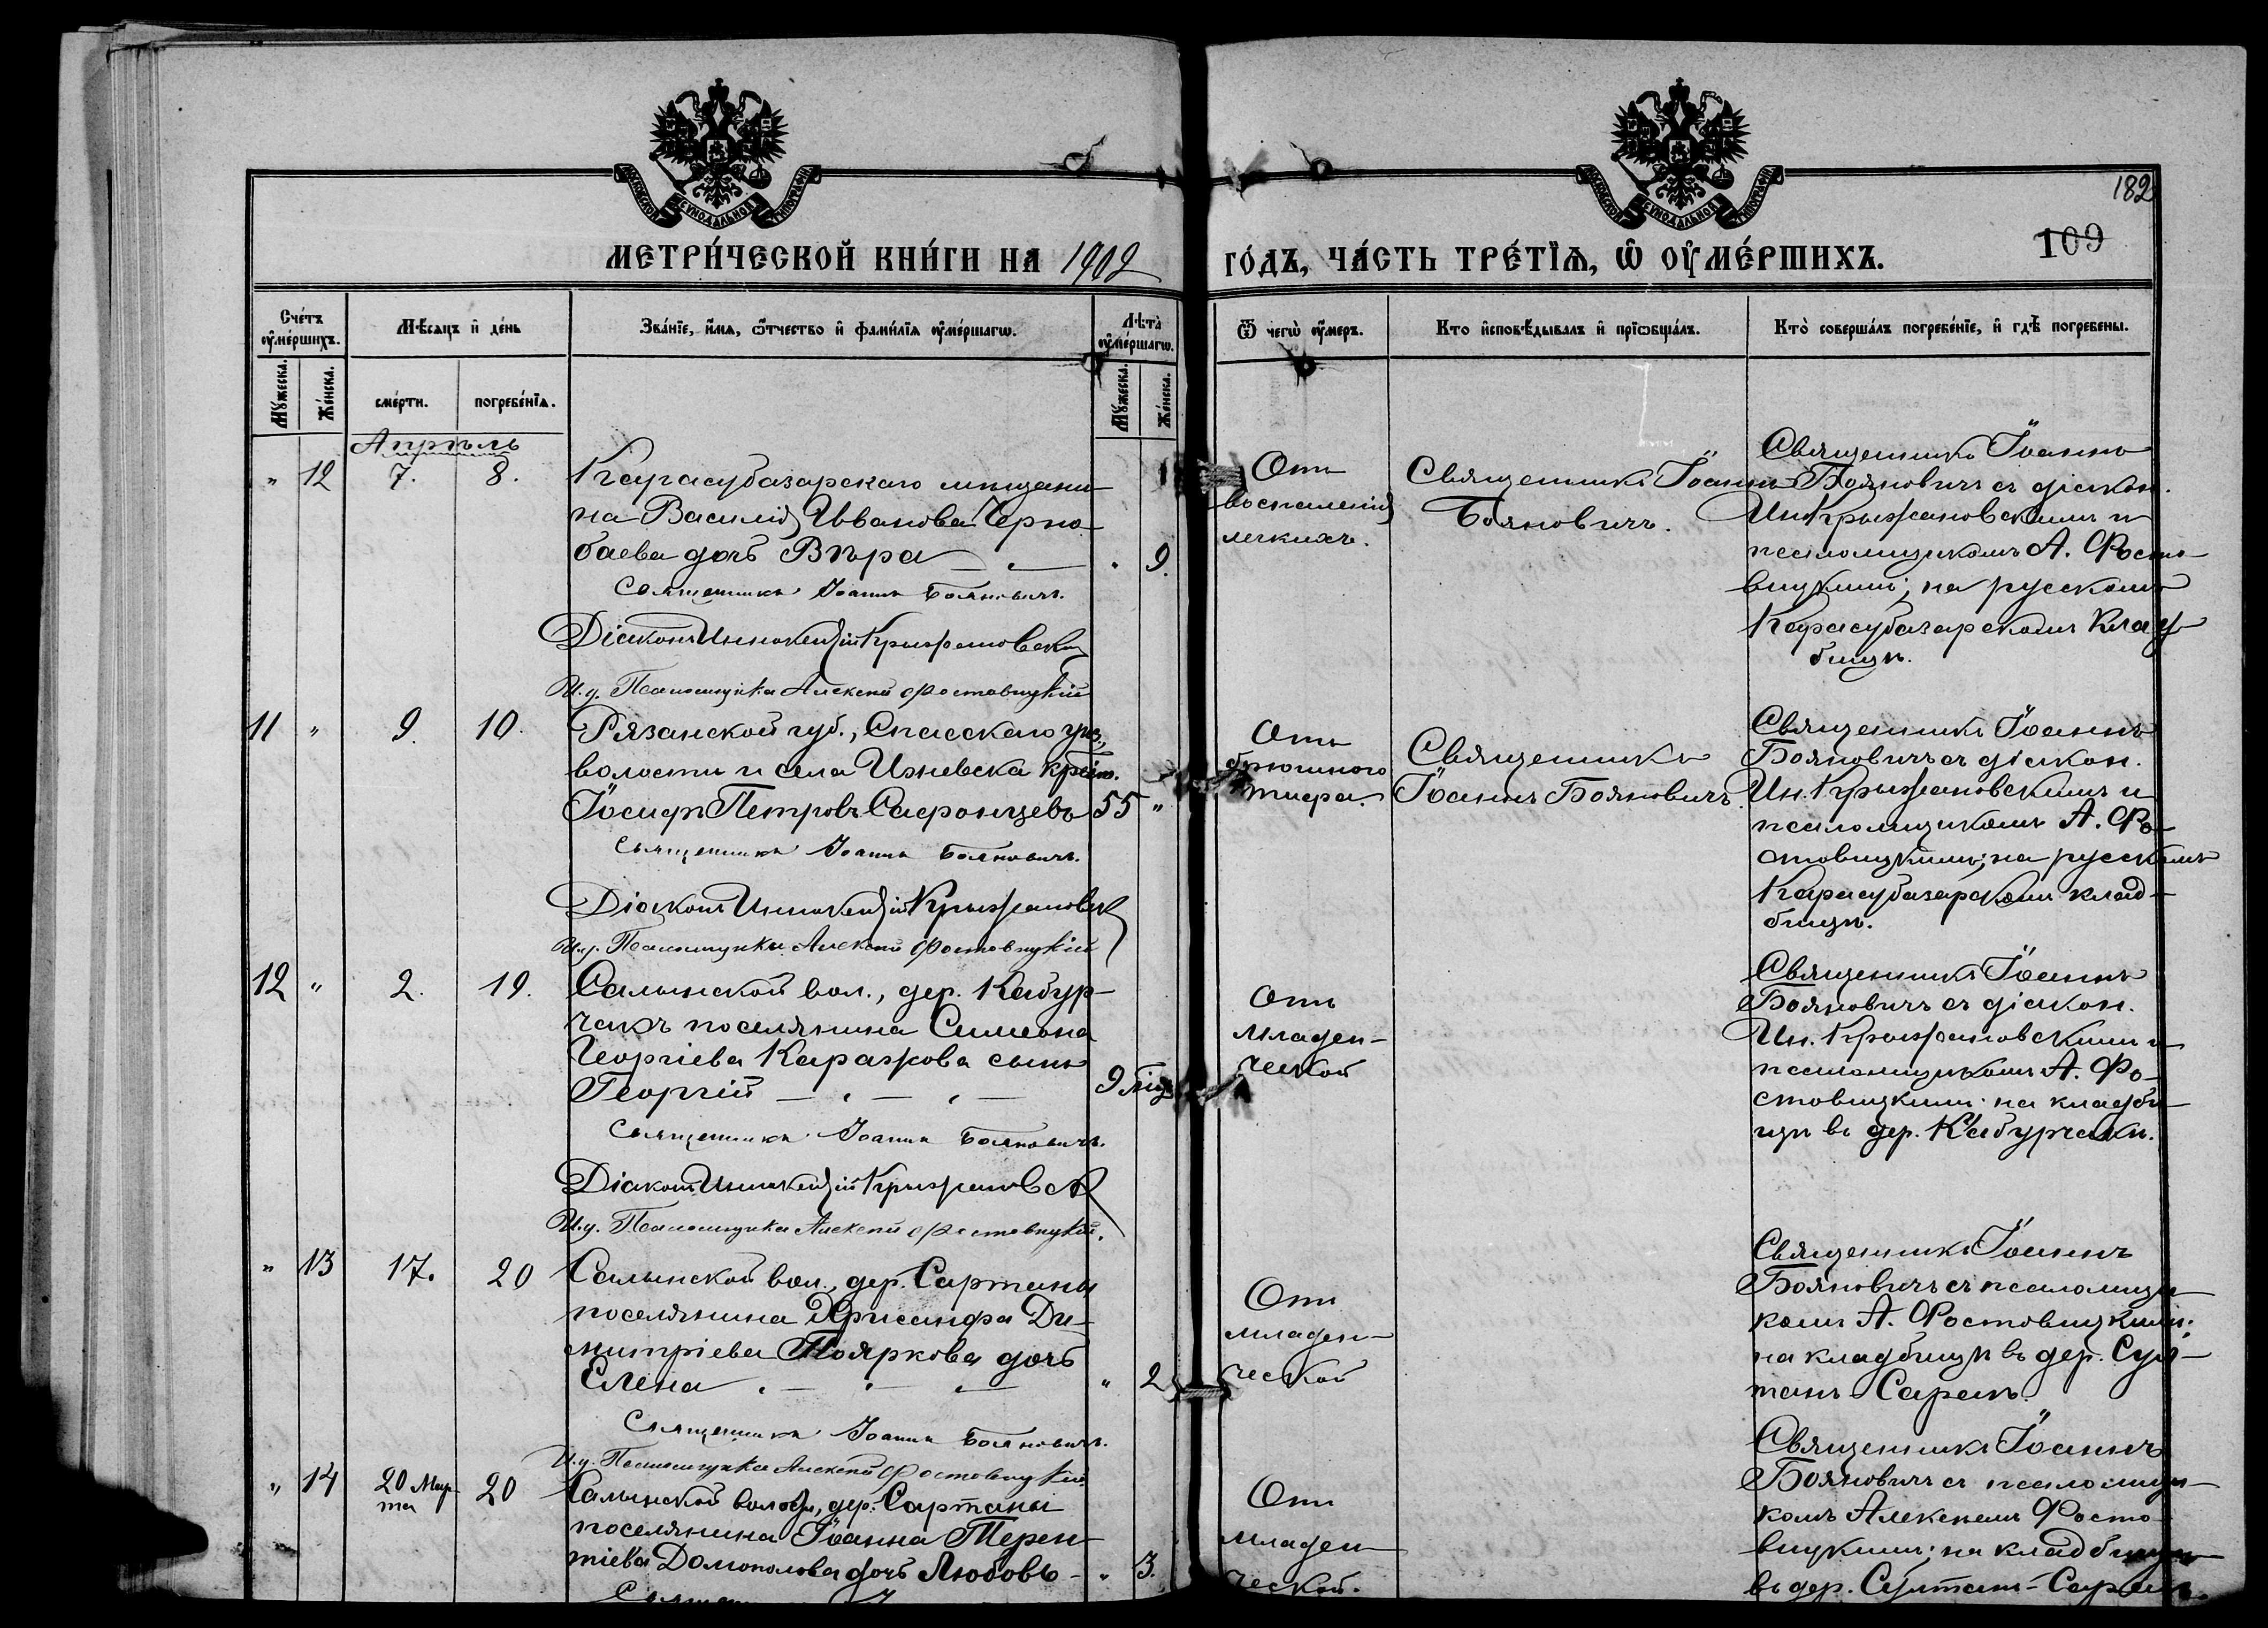 МОСКОВСКОЙ СѴНОДАЛЬНОЙ ТИПОГРАФІИ
МОСКОВСКОЙ СѴНОДАЛЬНОЙ ТИПОГРАФІИ
182
109
МЕТРИ́ЧЕСКОЙ КНИ́ГИ НА 1902 ГО́ДЪ, ЧА́СТЬ ТРЕ́ТЇѦ, Ѽ ОУ҆МЕ́РШИХЪ.
Сче́тъ оу҆ме́ршихъ.
Мѣ́сяцъ и҆ де́нь
Зва́нїе, и҆́мя, ѻ҆́тчество и҆ фами́лїя оу҆ме́ршагѡ.
Лѣ̀та̀ оу҆ме́ршагѡ.
Ѿ чегѡ̀ оу҆́меръ.
Кто̀ и҆сповѣ́дывалъ и҆ прїѡбща́лъ.
Кто̀ соверша́лъ погребе́нїе, и҆ гдѣ̀ погребены.
Мꙋ́жеска.
Же́нска.
сме́рти.
погребе́нїя.
Мꙋ́жеска.
Же́нска.
Апрѣль
" 12 7. 8.
Карасубазарскаго мѣщани-
на Василія Иванова Черно-
баева дочь Вѣра
" 9.
Священникъ Іоаннъ Бояновичъ.
Діаконъ Иннокентій Крыжановскій
И.д. Псаломщика Алексѣй Фостовицкій
Отъ
воспаленія
легкихъ.
Священникъ Іоаннъ
Бояновичъ.
Священникъ Іоаннъ
Бояновичъ съ діакон.
Ин. Крыжановскимъ и
псаломщикомъ А. Фосто-
вицкимъ; на русскомъ
Карасубазарскомъ клад-
бищѣ.
11 " 9. 10.
Рязанской губ., Спасскаго уѣз.,
волости и села Ижевска крест.
Іосифъ Петровъ Сафонцевъ
55 "
Священникъ Іоаннъ Бояновичъ.
Діаконъ Иннокентій Крыжановск
И.д. Псаломщика Алексѣй Фостовицкій
Отъ
брюшного
тифа.
Священникъ
Іоаннъ Бояновичъ.
Священникъ Іоаннъ
Бояновичъ съ діакон.
Ин. Крыжановскимъ и
псаломщикомъ А. Фо-
стовицкимъ; на русскомъ
Карасубазарскомъ клад-
бищѣ.
12 " 2. 19.
Салынской вол., дер. Кабур-
чакъ поселянина Симеона
Георгіева Каражова сынъ
Георгій
9 мѣц.
Священникъ Іоаннъ Бояновичъ.
Діаконъ Иннокентій Крыжановск
И.д. Псаломщика Алексѣй Фостовицкій.
Отъ
младен-
ческой
Священникъ Іоаннъ
Бояновичъ съ діакон.
Ин. Крыжановскимъ и
псаломщикомъ А. Фо-
стовицкимъ; на кладби-
щѣ въ дер. Кабурчаки.
" 13 17. 20
Салынской вол., дер. Сартаны
поселянина Хрисанфа Ди-
митріева Пояркова дочь
Елена
" 2
Священникъ Іоаннъ Бояновичъ.
И.д. Псаломщика Алексѣй Фостовицкій
Отъ
младен-
ческой
Священникъ Іоаннъ
Бояновичъ съ псаломщи-
комъ А. Фостовицкимъ;
на кладбищѣ въ дер. Сул-
танъ-Сараѣ.
" 14 20 Мар-
та 20
Салынской волости, дер. Сартаны
поселянина Іоанна Терен-
тіева Домополова дочь Любовь -
" 3.
Отъ
младен-
ческой.
Священникъ Іоаннъ
Бояновичъ съ псаломщи-
комъ Алексѣемъ Фосто-
вицкимъ; на кладбищѣ
въ дер. Султанъ-Сараѣ.